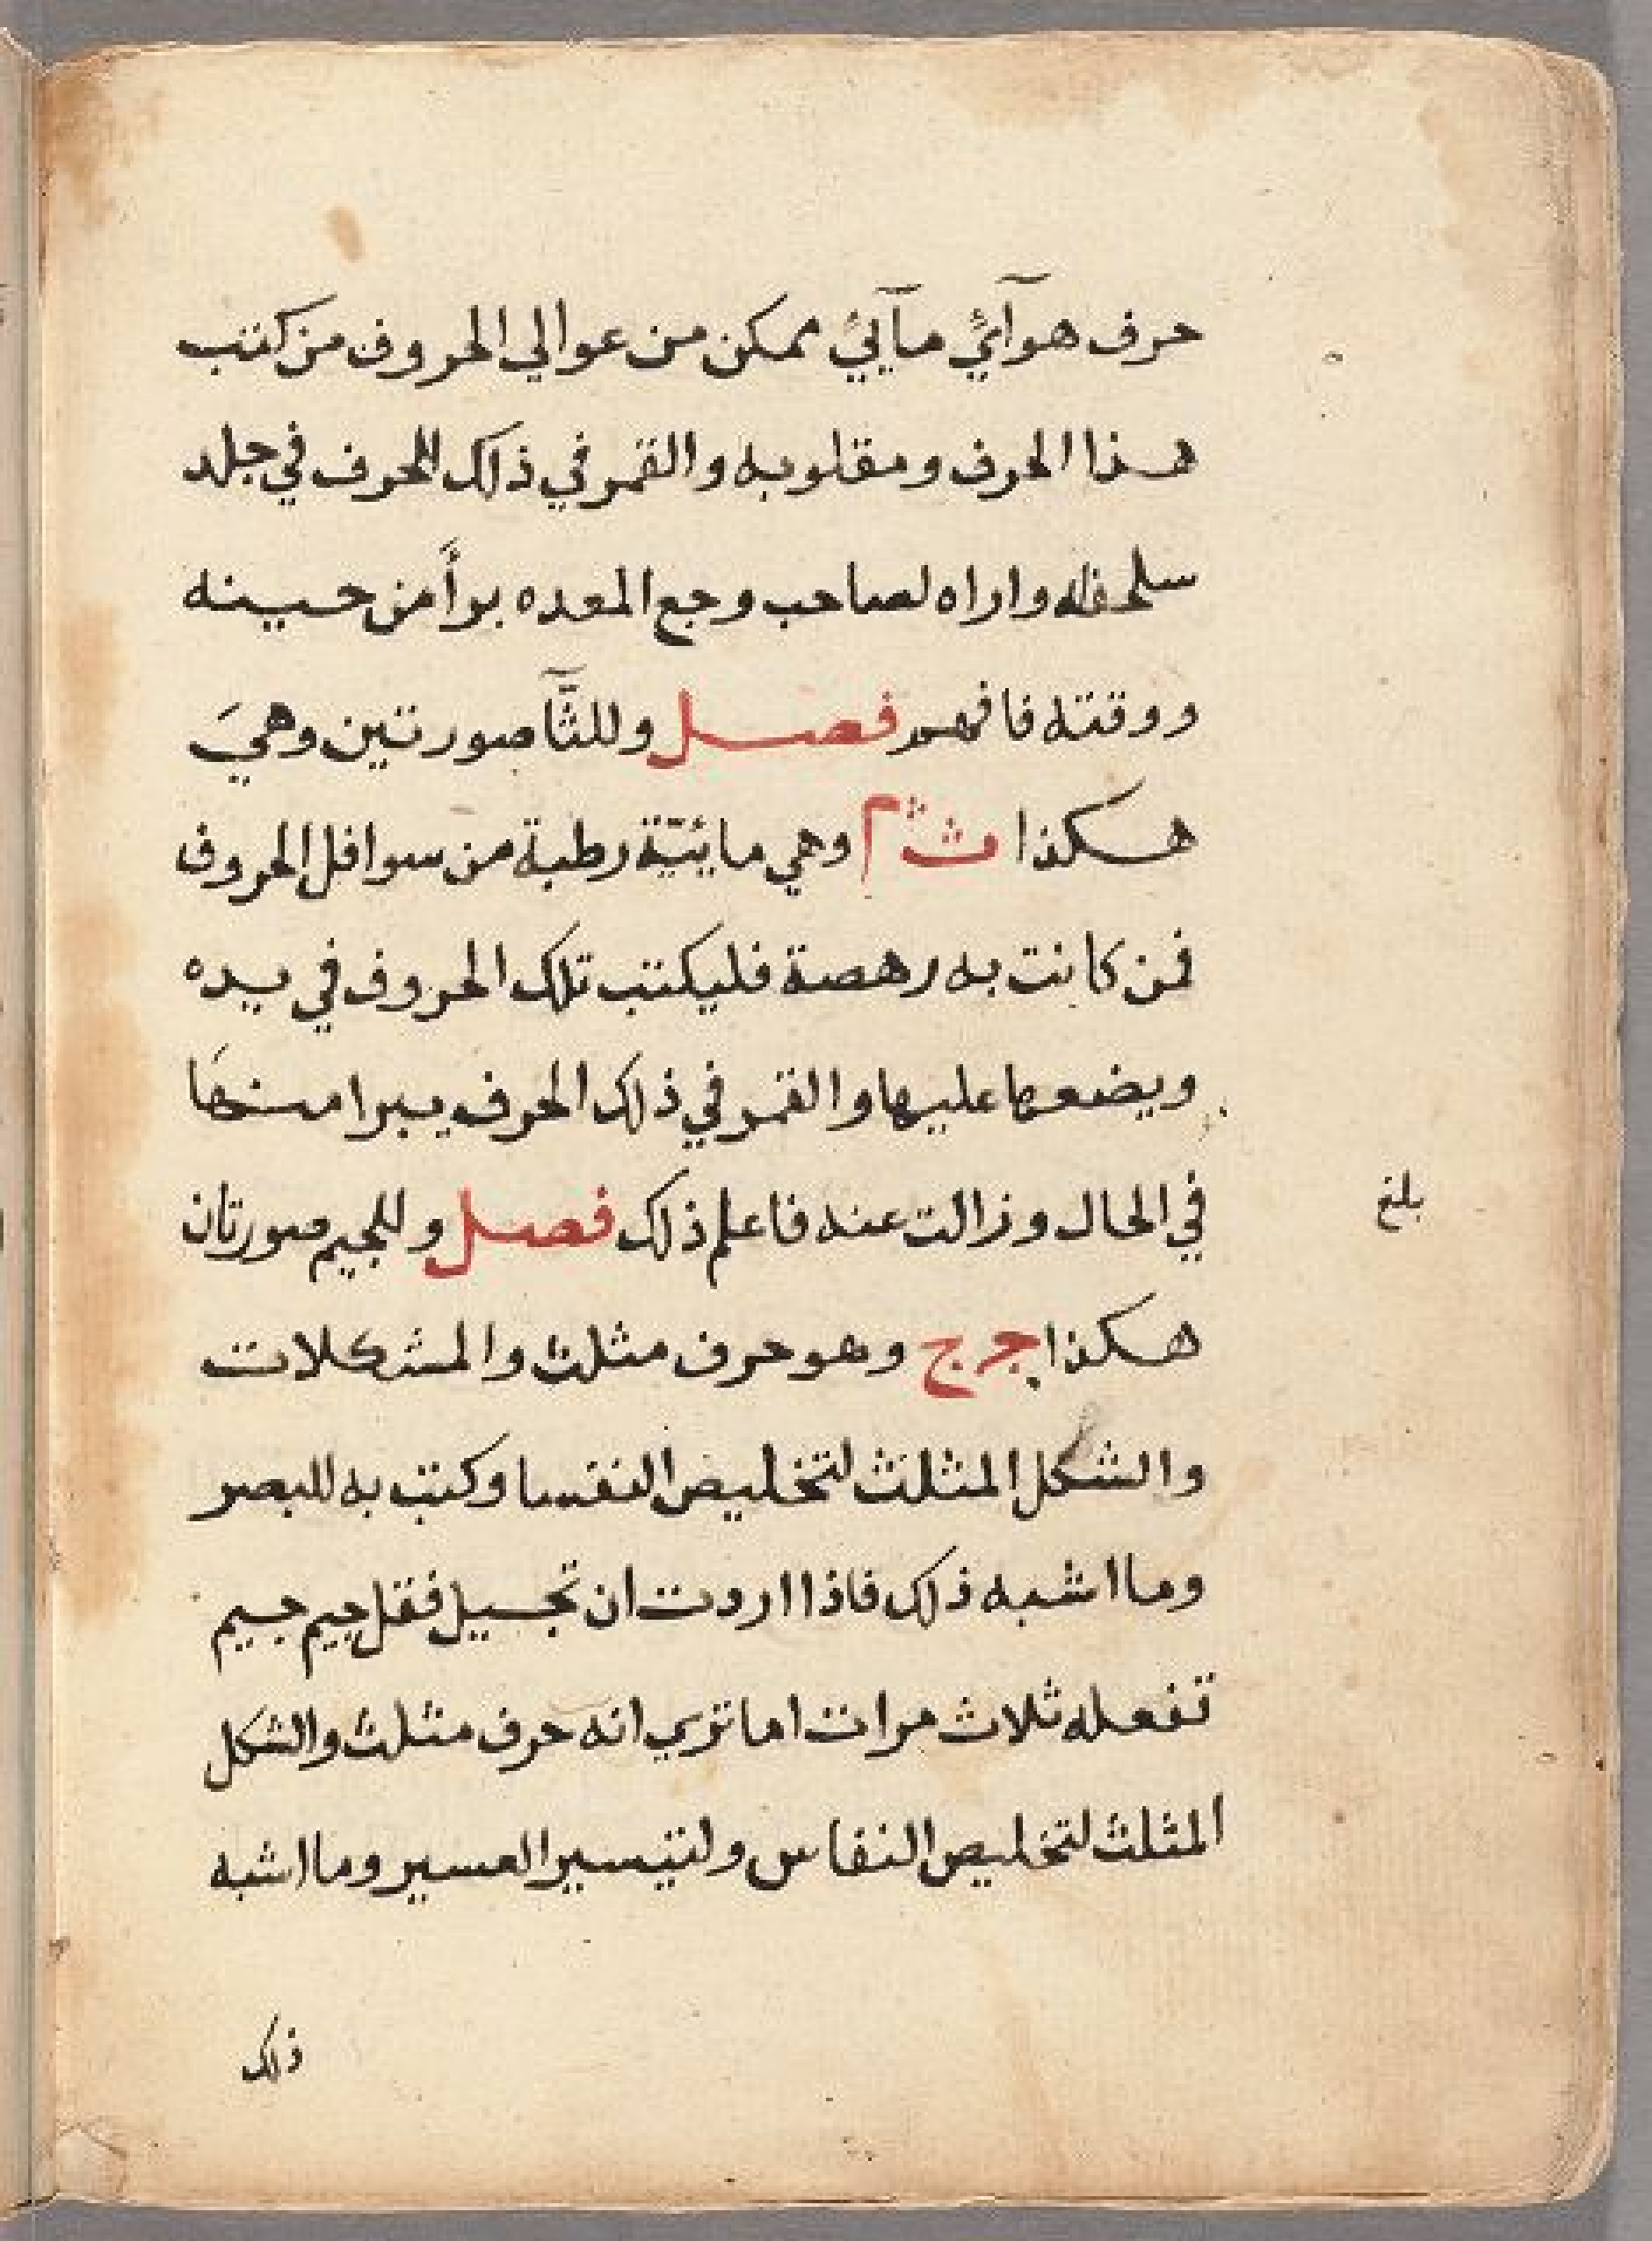 حرف هوآئيّ مآييّ ممكن من عوالي الحروف من كتب
هذا الحرف ومقلوبه والقمر في ذلك الحرف في جلد
سلحفاه واراه لصاحب وجع المعده برأ من حينه
ووقته فافهم فصل وللثّآ صورتين وهيَ
هكذا وهي مايئيّة رطبة من سوافل الحروف
فمن كانت به رهصة فليكتب تلك الحروف في يده
ويضعها عليها والقمر في ذلك الحرف يبرا منهَا
في الحال وزالت عنه فاعلم ذلك فصل وللجيم صورتان
بلغ
هكذا ج ج وهو حرف مثلث والمشكلات
والشكل المثلث لتخليص النفسا وكتب به للبصر
وما اشبه ذلك فاذا اردت ان تجيل فقل جيم جيم
تفعله ثلاث مرات اما تري انه حرف مثلث والشكل
المثلث لتخليص النفاس ولتيسير العسير وما اشبه
ذلك